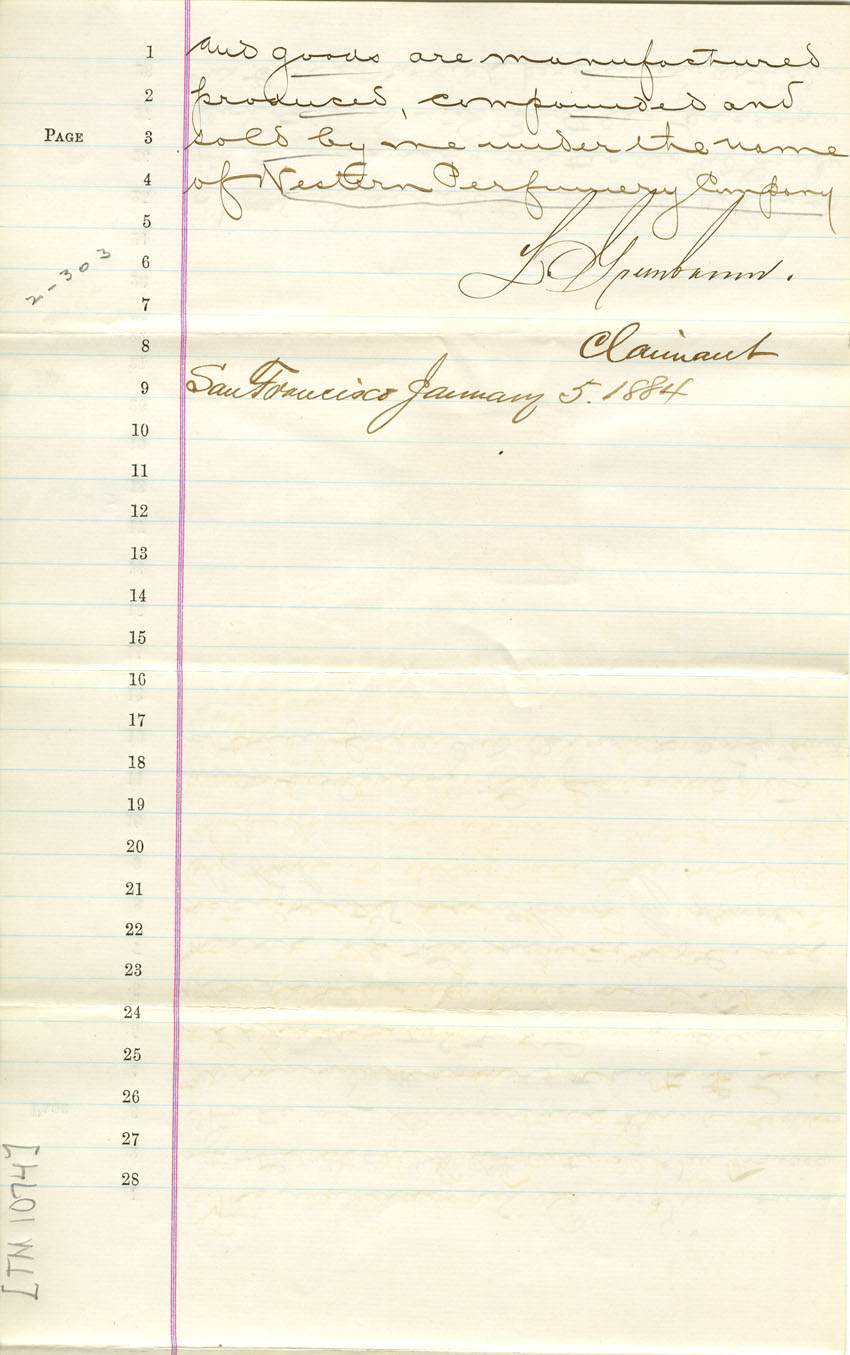 1 and goods are manufactured
2 produced, compounded and
PAGE 3 sold by me under the name
4 of Western Perfumery Company
5
L. Grunbaum.
2-303 6
7
8 Claimant
9 San Francisco January 5. 1884
10
11
12
13
14
15
16
17
18
19
20
21
22
23
24
25
26
27
28
[TM 1074]